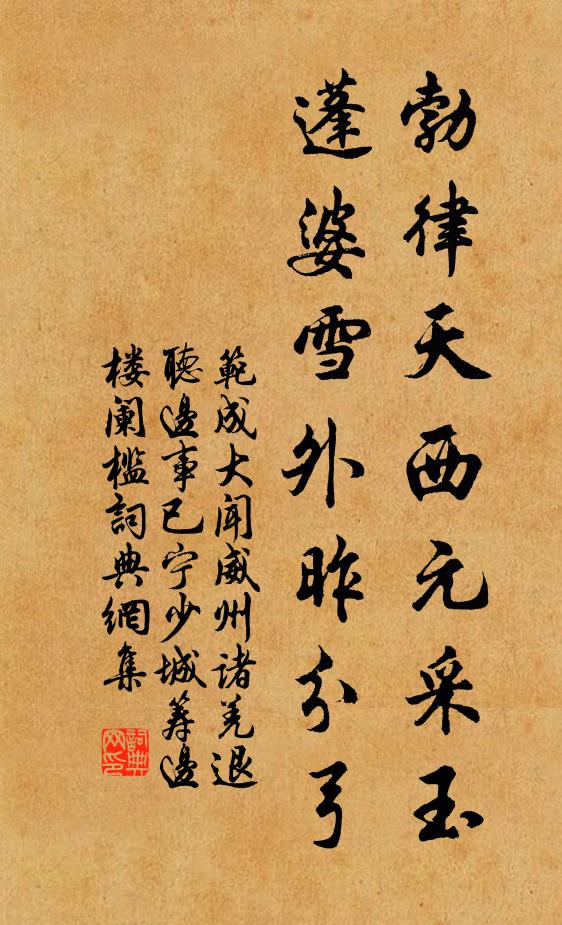 勃律天西元采玉
蓬婆雪外昨分弓
範成大闻威州诸羌退
聽邊事已宁少城筹邊
楼阑槛詞典網集
詞典网印